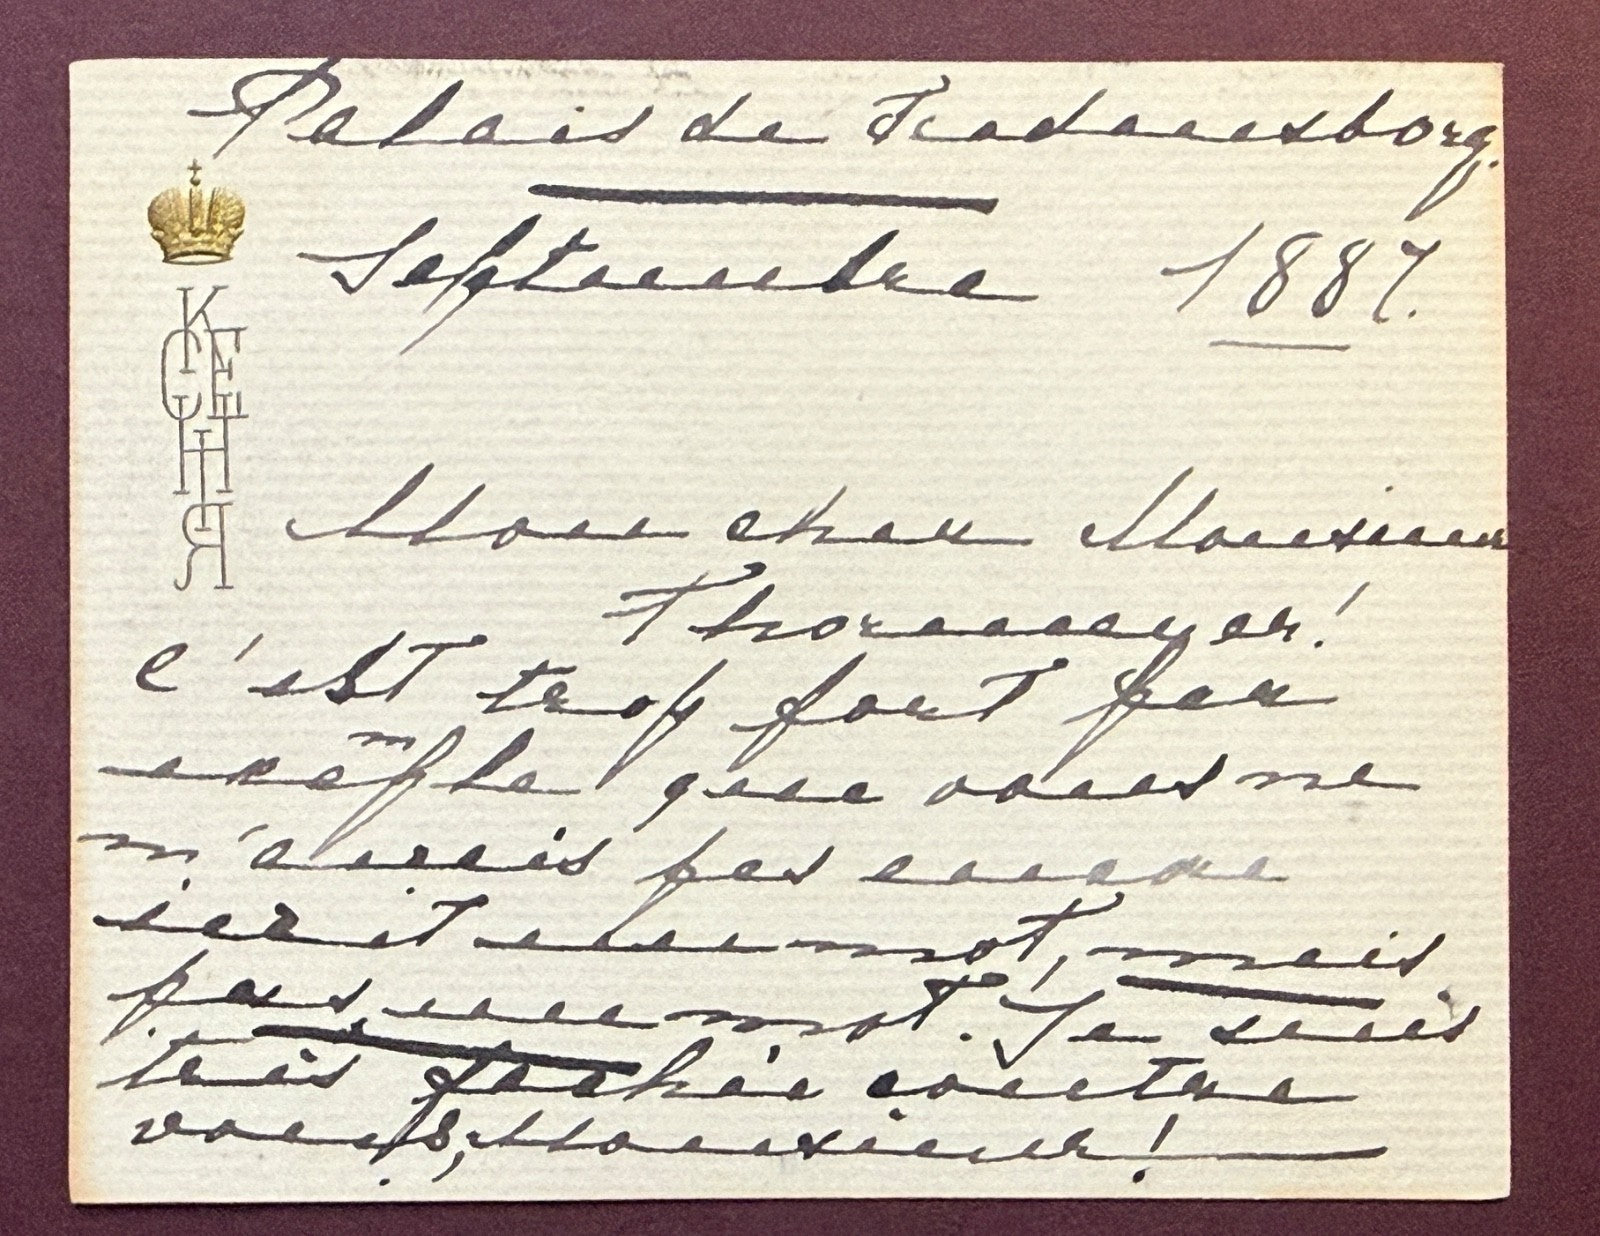 Palais de Fredensborg.
Septembre 1887.
КСЕНІЯ
Mon cher Monsieur
Thormeyer!
C'est trop fort par
exemple que vous ne
m'avais pas encore
écrit un mot, mais
pas un mot! Je suis
très fachée contre
vous, Monsieur!